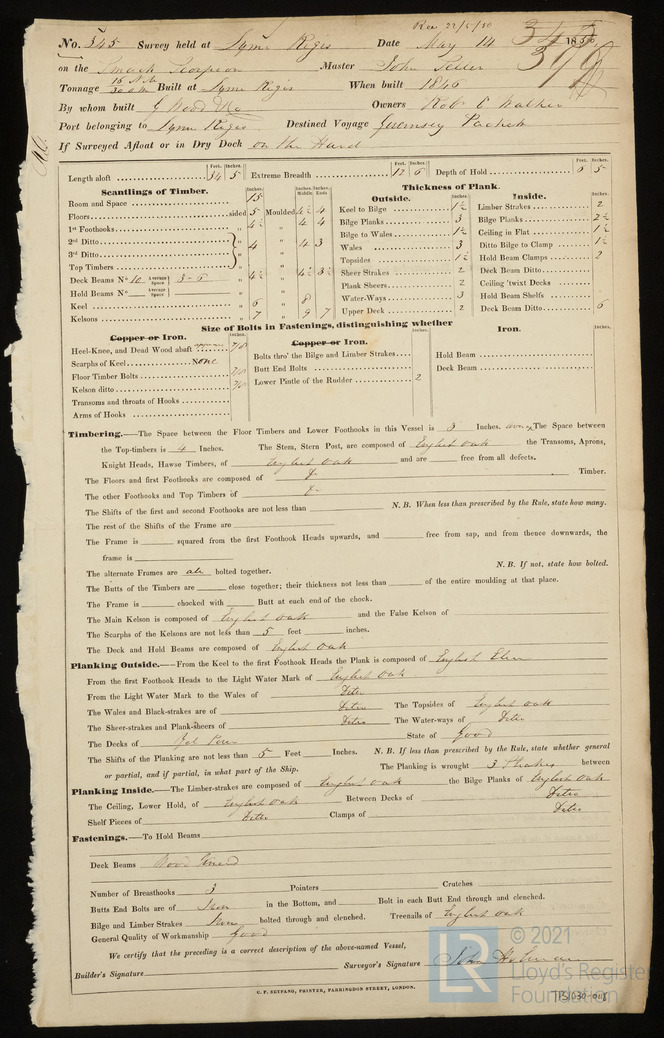 Rec 22/5/50
No. 345 Survey held at Lyme Regis Date May 14 1850
on the Smack Scorpion Master John
Tonnage Built at Lyme Regis When built 1846
By whom built J Wood Owners Rob
Port belonging to Lyme Regis Destined Voyage Guernsey Packet
If Surveyed Afloat or in Dry Dock on the Hard
Feet. Inches. Feet. Inches. Feet. Inches.
Length aloft 34 5 Extreme Breadth 12 6 Depth of Hold 6 5
Scantlings of Timber.
Inches. Inches. Middle Inches. Ends
Room and Space 15
Floors sided 5 Moulded 4½ 4
1st Foothooks " 4½ " 4 4
2nd Ditto
3rd Ditto " 4 " 4 3
Top Timbers
Deck Beams No 10 Average Space 3-6 " 4½ " 4½ 3½
Hold Beams No Average Space " "
Keel " 6 " 8
Kelsons " 7 " 9 7
Thickness of Plank.
Outside. Inches.
Keel to Bilge 1½
Bilge Planks 3
Bilge to Wales 1½
Wales 3
Topsides 1½
Sheer Strakes 2
Plank Sheers 2
Water-Ways 3
Upper Deck 2
Inside. Inches.
Limber Strakes 2
Bilge Planks 2½
Ceiling in Flat 1½
Ditto Bilge to Clamp 1½
Hold Beam Clamps 2
Deck Beam Ditto
Ceiling 'twixt Decks
Hold Beam Shelfs
Deck Beam Ditto 6
Size of Bolts in Fastenings, distinguishing whether
Copper or Iron. Inches.
Heel-Knee, and Dead Wood abaft 7/8
Scarphs of Keel None
Floor Timber Bolts 7/8
Kelson ditto 7/8
Transoms and throats of Hooks
Arms of Hooks
Copper or Iron. Inches.
Bolts thro' the Bilge and Limber Strakes
Butt End Bolts
Lower Pintle of the Rudder 2
Iron. Inches.
Hold Beam
Deck Beam
Timbering.—The Space between the Floor Timbers and Lower Foothooks in this Vessel is 3 Inches. The Space between
the Top-timbers is 4 Inches. The Stem, Stern Post, are composed of English Oak the Transoms, Aprons,
Knight Heads, Hawse Timbers, of English Oak and are free from all defects.
The Floors and first Foothooks are composed of Timber.
The other Foothooks and Top Timbers of
The Shifts of the first and second Foothooks are not less than N. B. When less than prescribed by the Rule, state how many.
The rest of the Shifts of the Frame are
The Frame is squared from the first Foothook Heads upwards, and free from sap, and from thence downwards, the
frame is
The alternate Frames are all bolted together. N. B. If not, state how bolted.
The Butts of the Timbers are close together; their thickness not less than of the entire moulding at that place.
The Frame is chocked with Butt at each end of the chock.
The Main Kelson is composed of English Oak and the False Kelson of
The Scarphs of the Kelsons are not less than 5 feet inches.
The Deck and Hold Beams are composed of English Oak
Planking Outside.—From the Keel to the first Foothook Heads the Plank is composed of English Elm
From the first Foothook Heads to the Light Water Mark of English Oak
From the Light Water Mark to the Wales of Ditto
The Wales and Black-strakes are of Ditto The Topsides of English Oak
The Sheer-strakes and Plank-sheers of Ditto The Water-ways of Ditto
The Decks of Yel Pine State of Good
The Shifts of the Planking are not less than 5 Feet Inches. N. B. If less than prescribed by the Rule, state whether general
or partial, and if partial, in what part of the Ship. The Planking is wrought 3 Strakes between
Planking Inside.—The Limber-strakes are composed of English Oak the Bilge Planks of English Oak
The Ceiling, Lower Hold, of English Oak Between Decks of Ditto
Shelf Pieces of Ditto Clamps of Ditto
Fastenings.—To Hold Beams
Deck Beams Wood
Number of Breasthooks 3 Pointers Crutches
Butts End Bolts are of Iron in the Bottom, and Bolt in each Butt End through and clenched.
Bilge and Limber Strakes Iron bolted through and clenched. Treenails of English Oak
General Quality of Workmanship Good
We certify that the preceding is a correct description of the above-named Vessel,
Builder's Signature Surveyor's Signature John
C. F. SEYFANG, PRINTER, FARRINGDON STREET, LONDON.
LR
© 2021
Lloyd's Register
Foundation